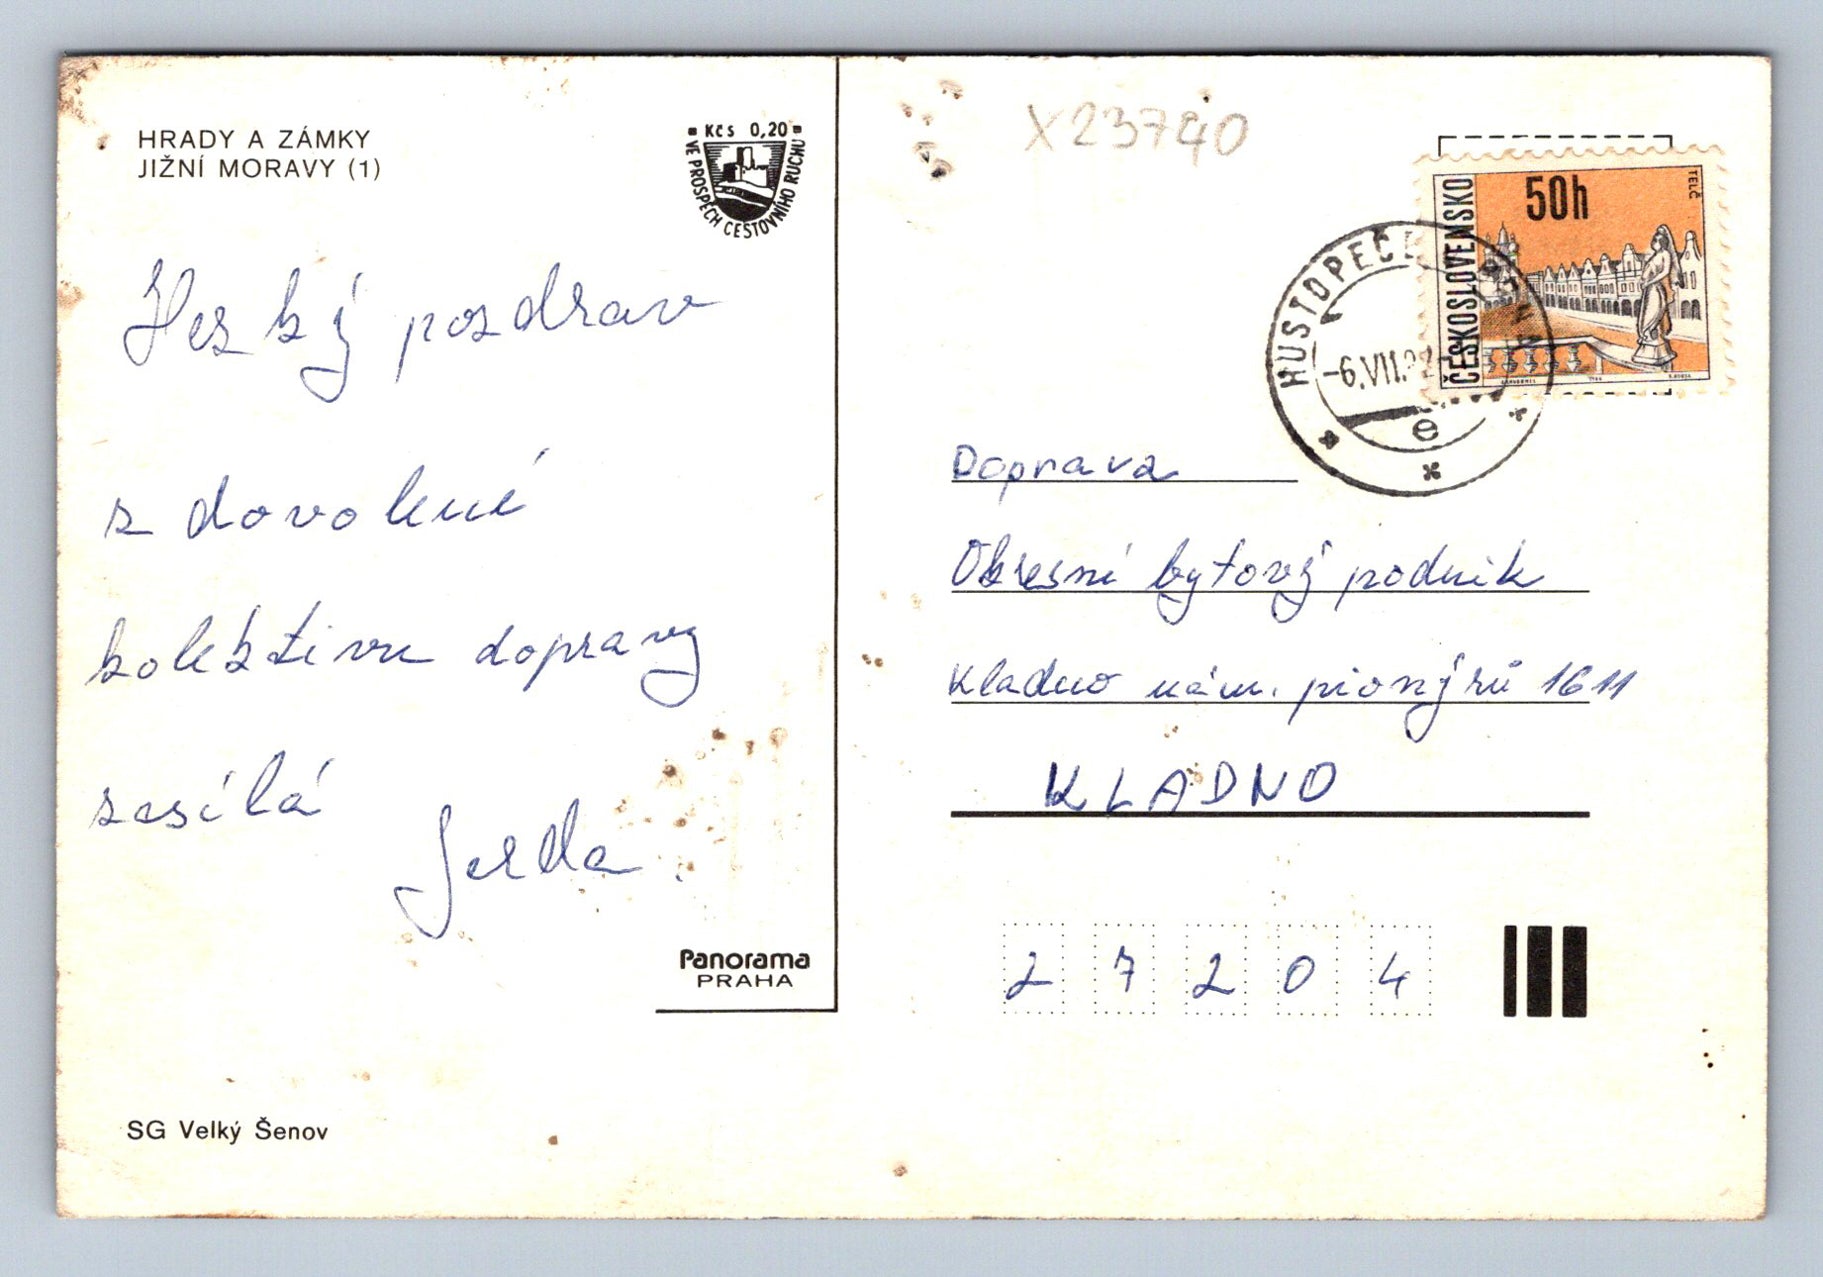 HRADY A ZÁMKY
JIŽNÍ MORAVY (1)
Kčs 0,20
VE PROSPĚCH CESTOVNÍHO RUCHU
Hezký pozdrav
z dovolené
kolektivu dopravy
zasílá
Jerda
Panorama
PRAHA
SG Velký Šenov
X23740
50h
TELČ
ČESKOSLOVENSKO
HUSTOPEČE
-6.VII.
e
Doprava
Okresní bytový podnik
Kladno nám. pionýrů 1611
KLADNO
2 7 2 0 4